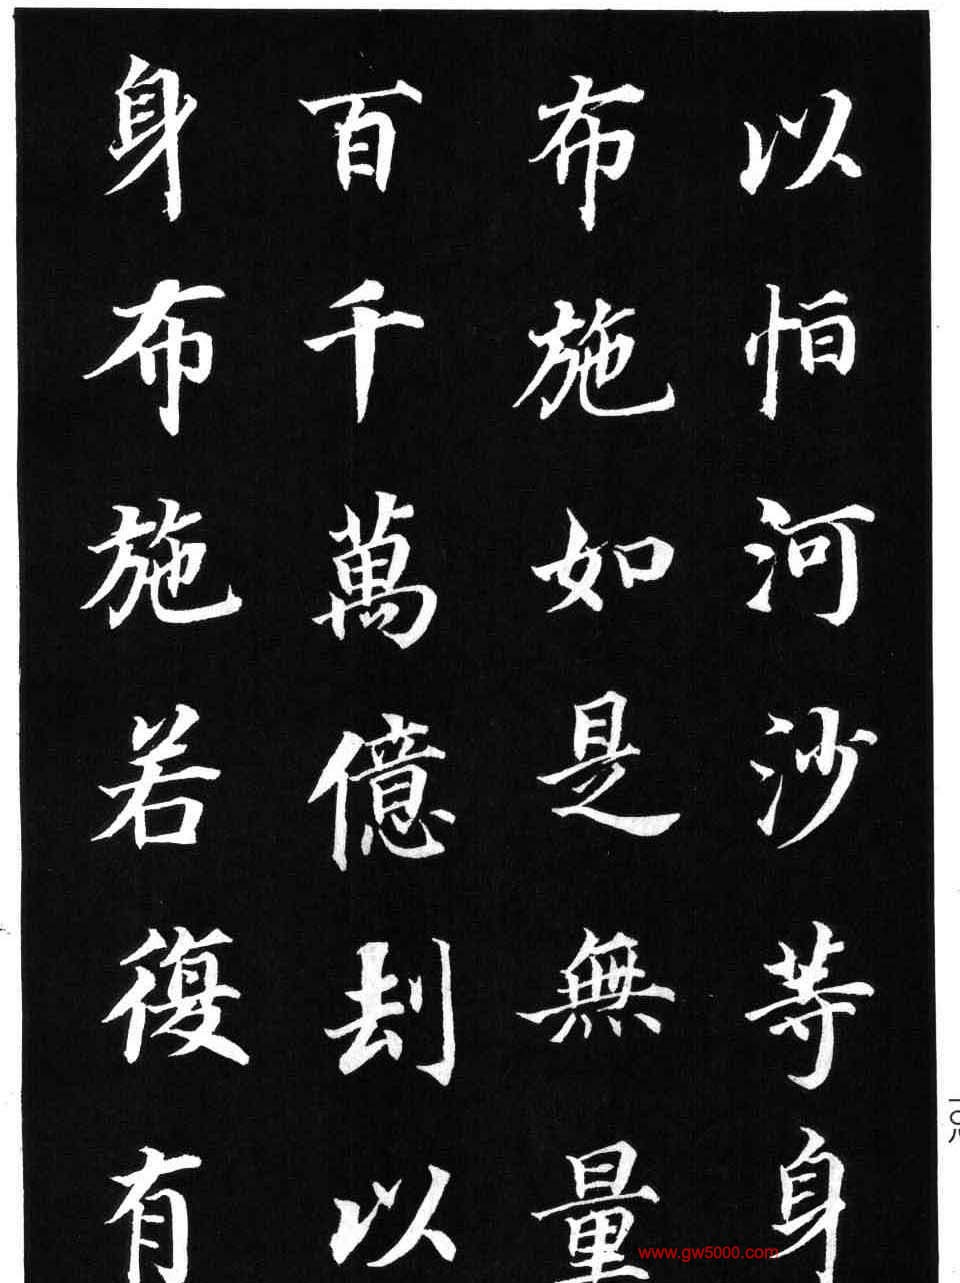 以恒河沙等身
布施如是無量
百千萬億刦以
身布施若復有
一〇八
www.gw5000.com